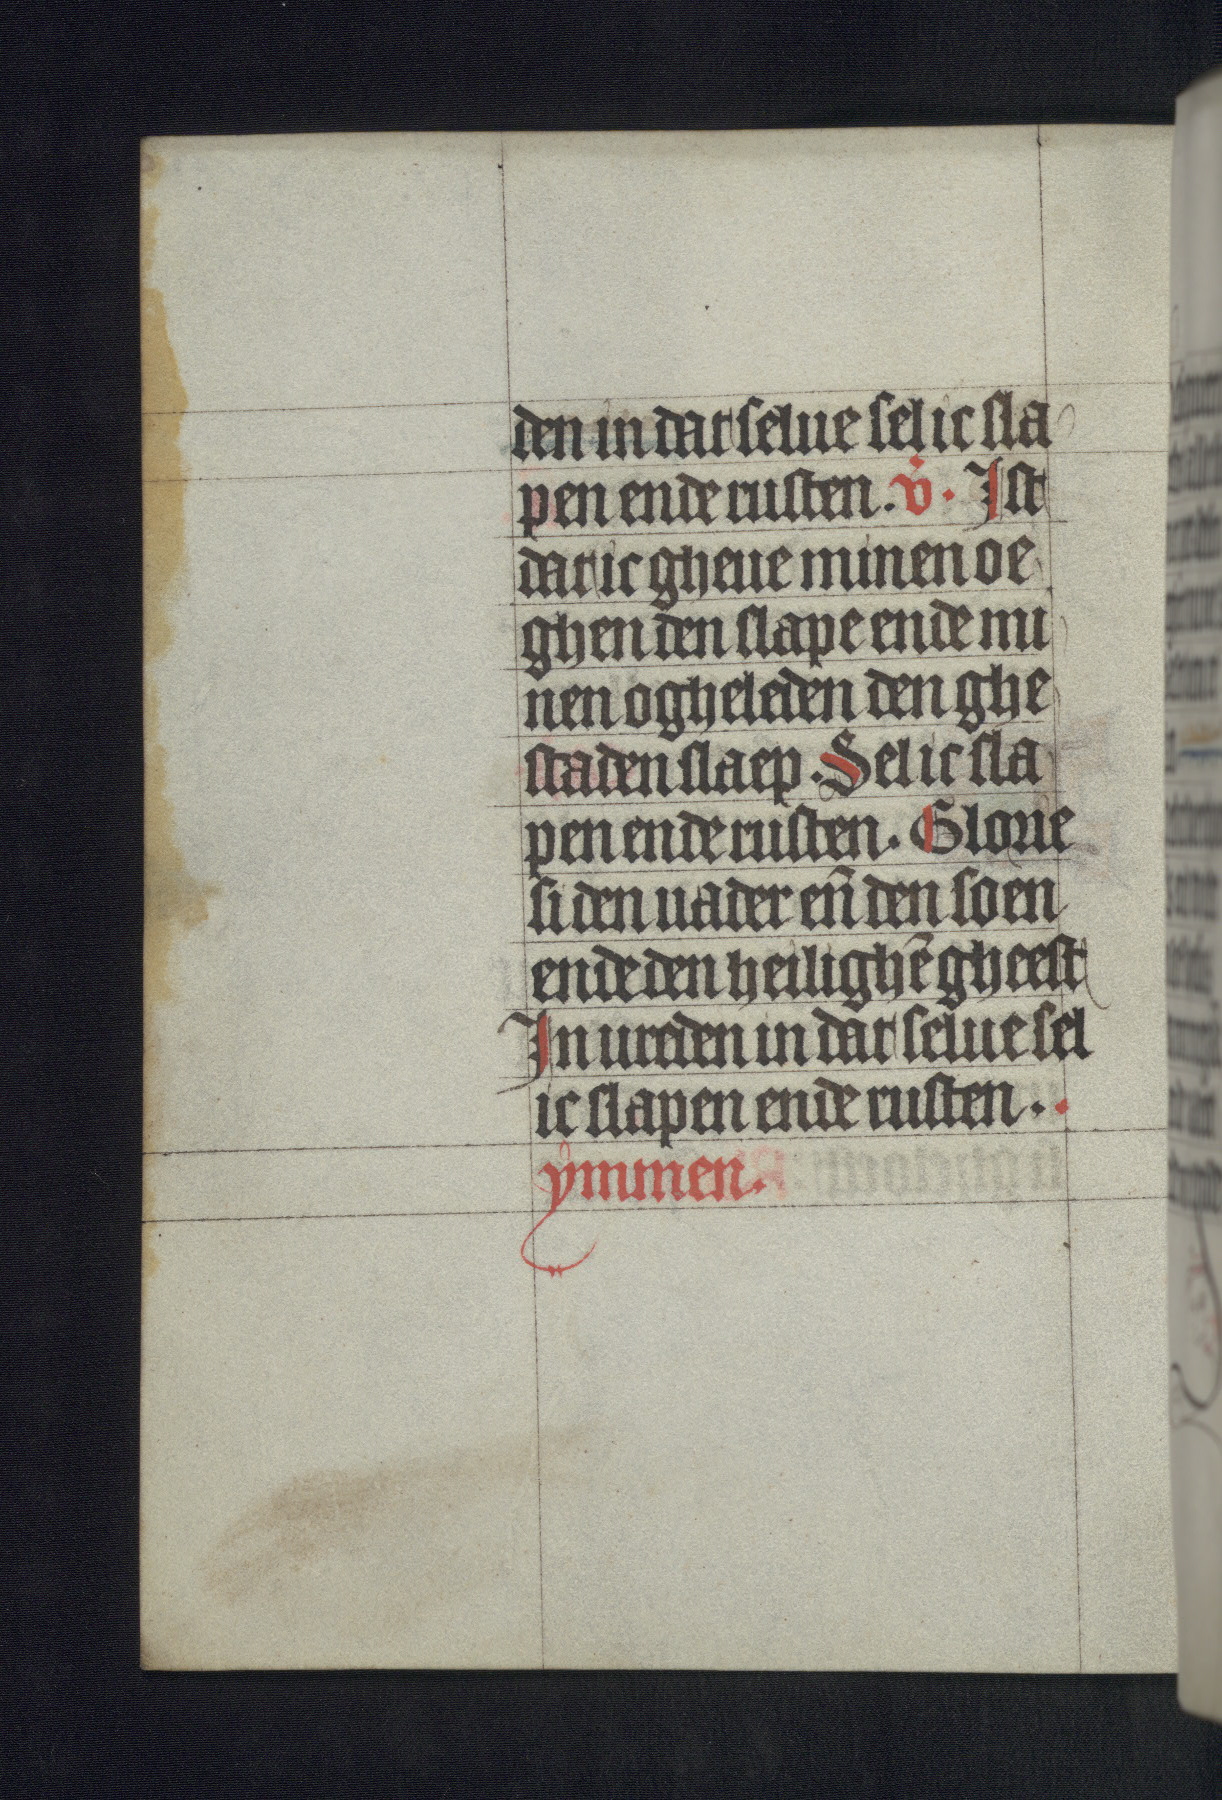 den in dat selue sel ic sla
pen ende rusten. v̇. Ist
dat ic gheue minen oe
ghen den slape ende mi
nen ogheleden den ghe
staden slaep. Sel ic sla
pen ende rusten. Glorie
si den uader eñ den soen
ende den heilighē gheest
In ureden in dat selue sel
ic slapen ende rusten..
ymmen.